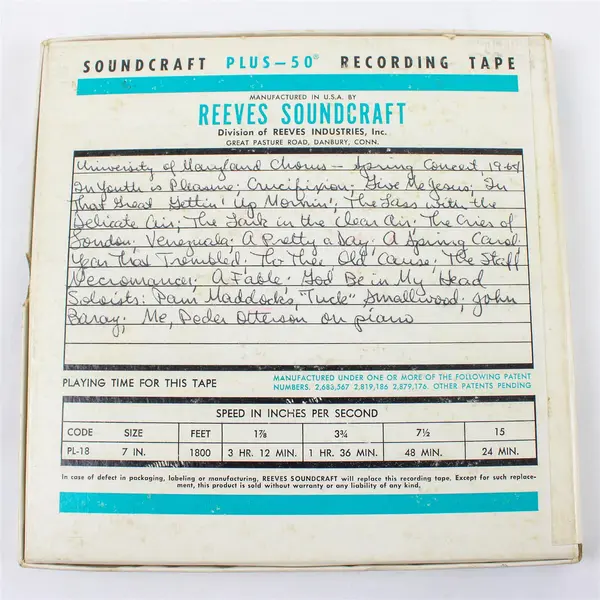 SOUNDCRAFT PLUS-50® RECORDING TAPE
MANUFACTURED IN U.S.A. BY
REEVES SOUNDCRAFT
Division of REEVES INDUSTRIES, Inc.
GREAT PASTURE ROAD, DANBURY, CONN.
University of Maryland Chorus - Spring Concert 1964
In Youth is Pleasure; Crucifixion; Give Me Jesus; In
That Great Gettin' Up Mornin'; The Lass with the
Delicate Air; The Lark in the Clear Air; The Cries of
London; Venezuala; A Pretty a Day; A Spring Carol;
Year That Trembled; Tho' Old Cause; The Staff
Necromancer; A Fable; God Be in My Head
Soloists: Pam Maddocks, "Tuck" Smallwood, John
Baray; Me, Peder Otterson on piano
PLAYING TIME FOR THIS TAPE
MANUFACTURED UNDER ONE OR MORE OF THE FOLLOWING PATENT
NUMBERS. 2,683,567 2,819,186 2,879,176. OTHER PATENTS PENDING
SPEED IN INCHES PER SECOND
CODE SIZE FEET 1⅞ 3¾ 7½ 15
PL-18 7 IN. 1800 3 HR. 12 MIN. 1 HR. 36 MIN. 48 MIN. 24 MIN.
In case of defect in packaging, labeling or manufacturing, REEVES SOUNDCRAFT will replace this recording tape. Except for such replace-
ment, this product is sold without warranty or any liability of any kind.